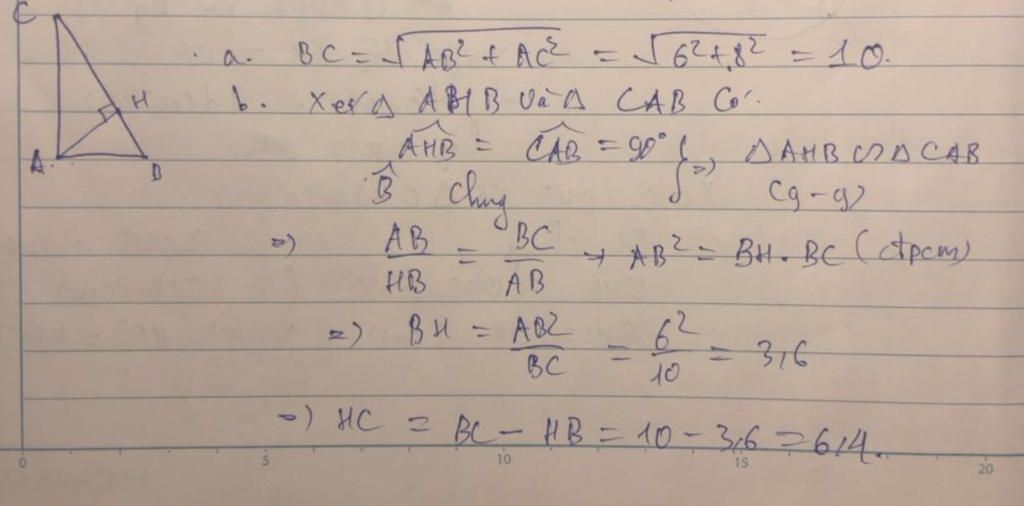 C
a. BC = √(AB² + AC²) = √(6² + 8²) = 10.
b. Xét Δ AHB và Δ CAB Có:
H
AHB = CAB = 90° } => Δ AHB ∽ Δ CAB
A B
B Chung (g-g)
=> AB/HB = BC/AB → AB² = BH . BC (đpcm)
=> BH = AB²/BC = 6²/10 = 3,6
=> HC = BC - HB = 10 - 3,6 = 6,4.
0 5 10 15 20